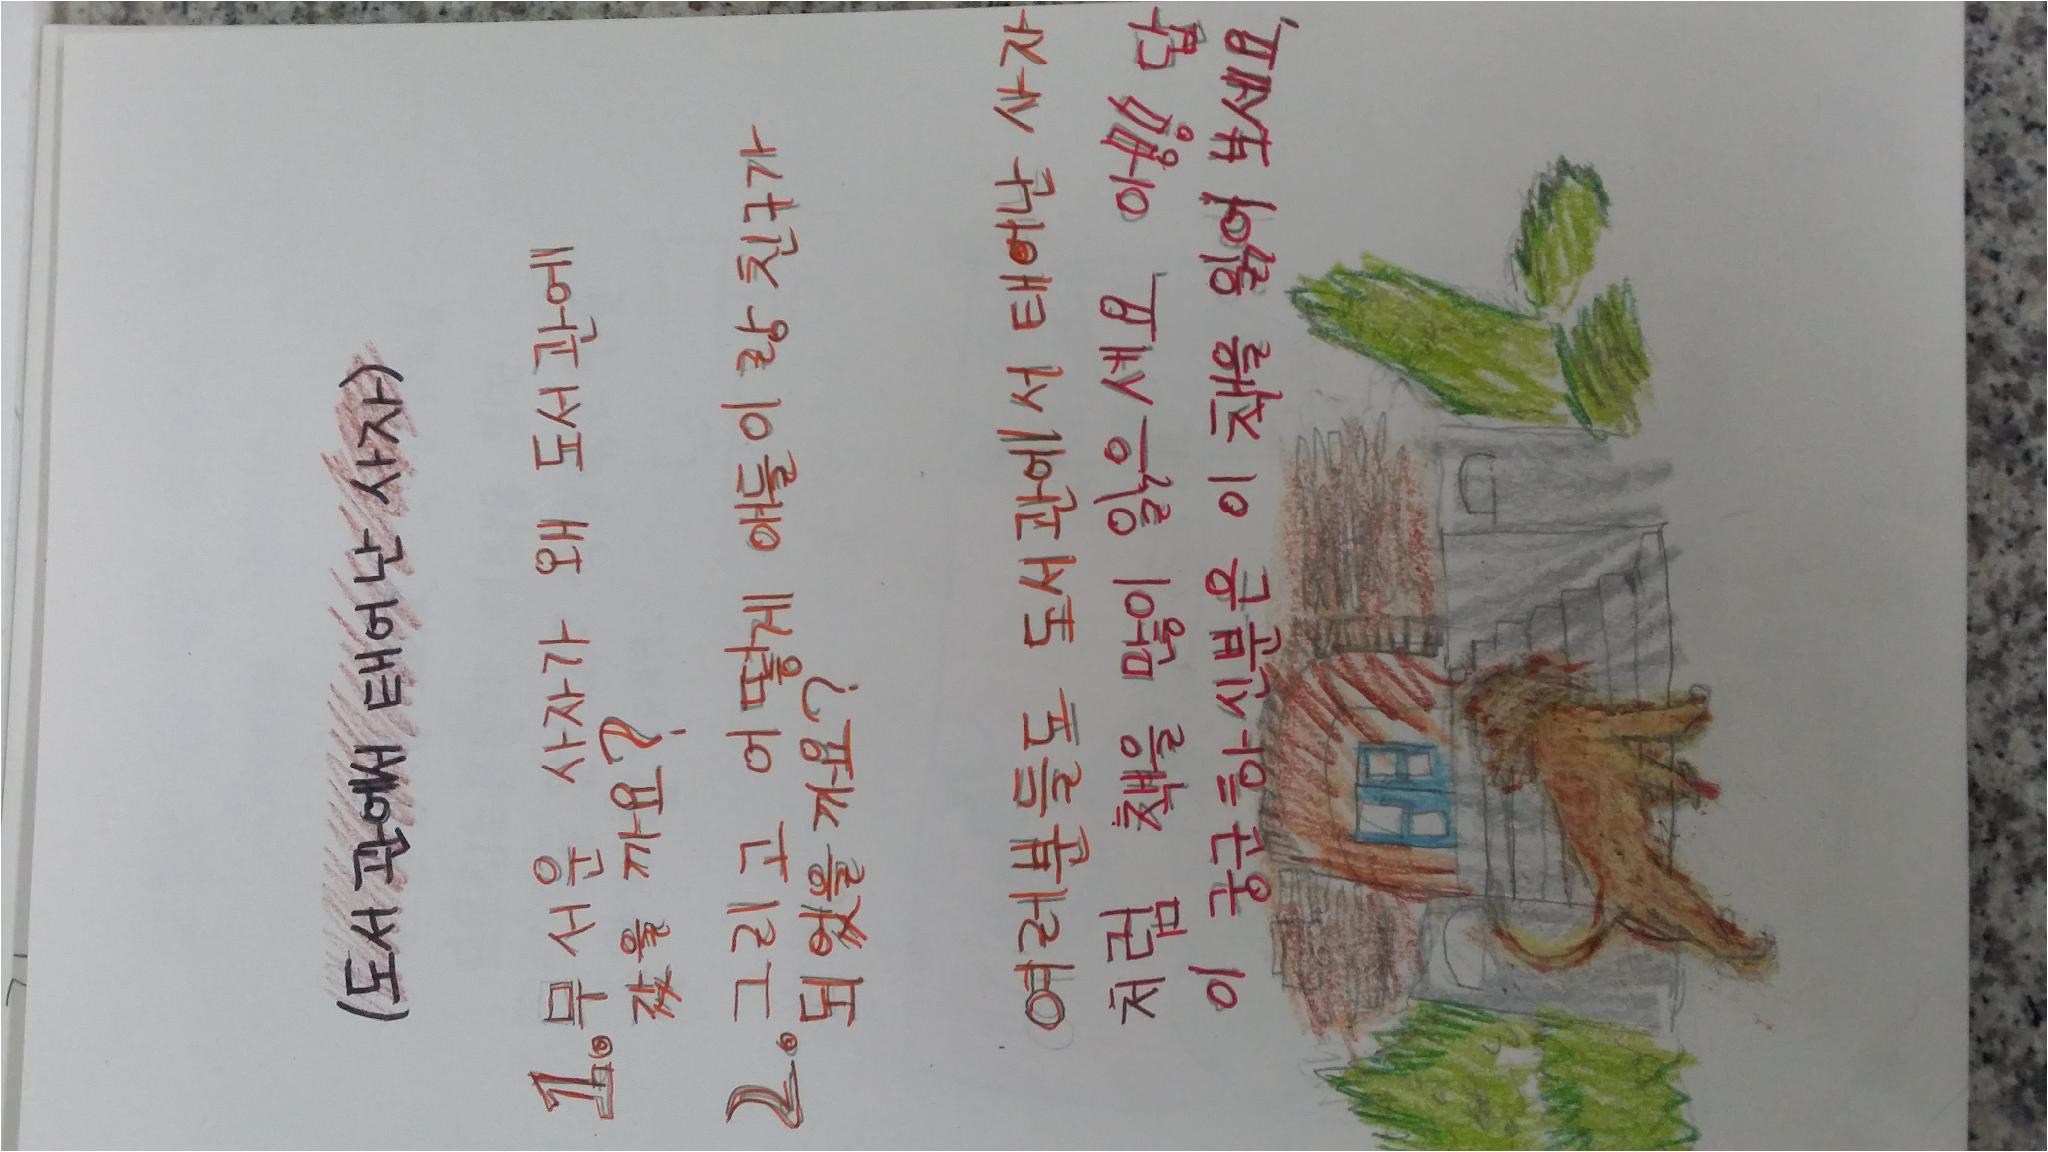 (도서관에서 태어난 사자)
1. 무서운 사자가 왜 도서관에
갔을까요?
2. 그리고 어떻게 애들이랑 친구가
되었을까요?
여러분들도 도서관에서 태어난 사자
처럼 책을 많이 읽으세요
이 궁굼하신분은 이 책을 읽어 보세요,